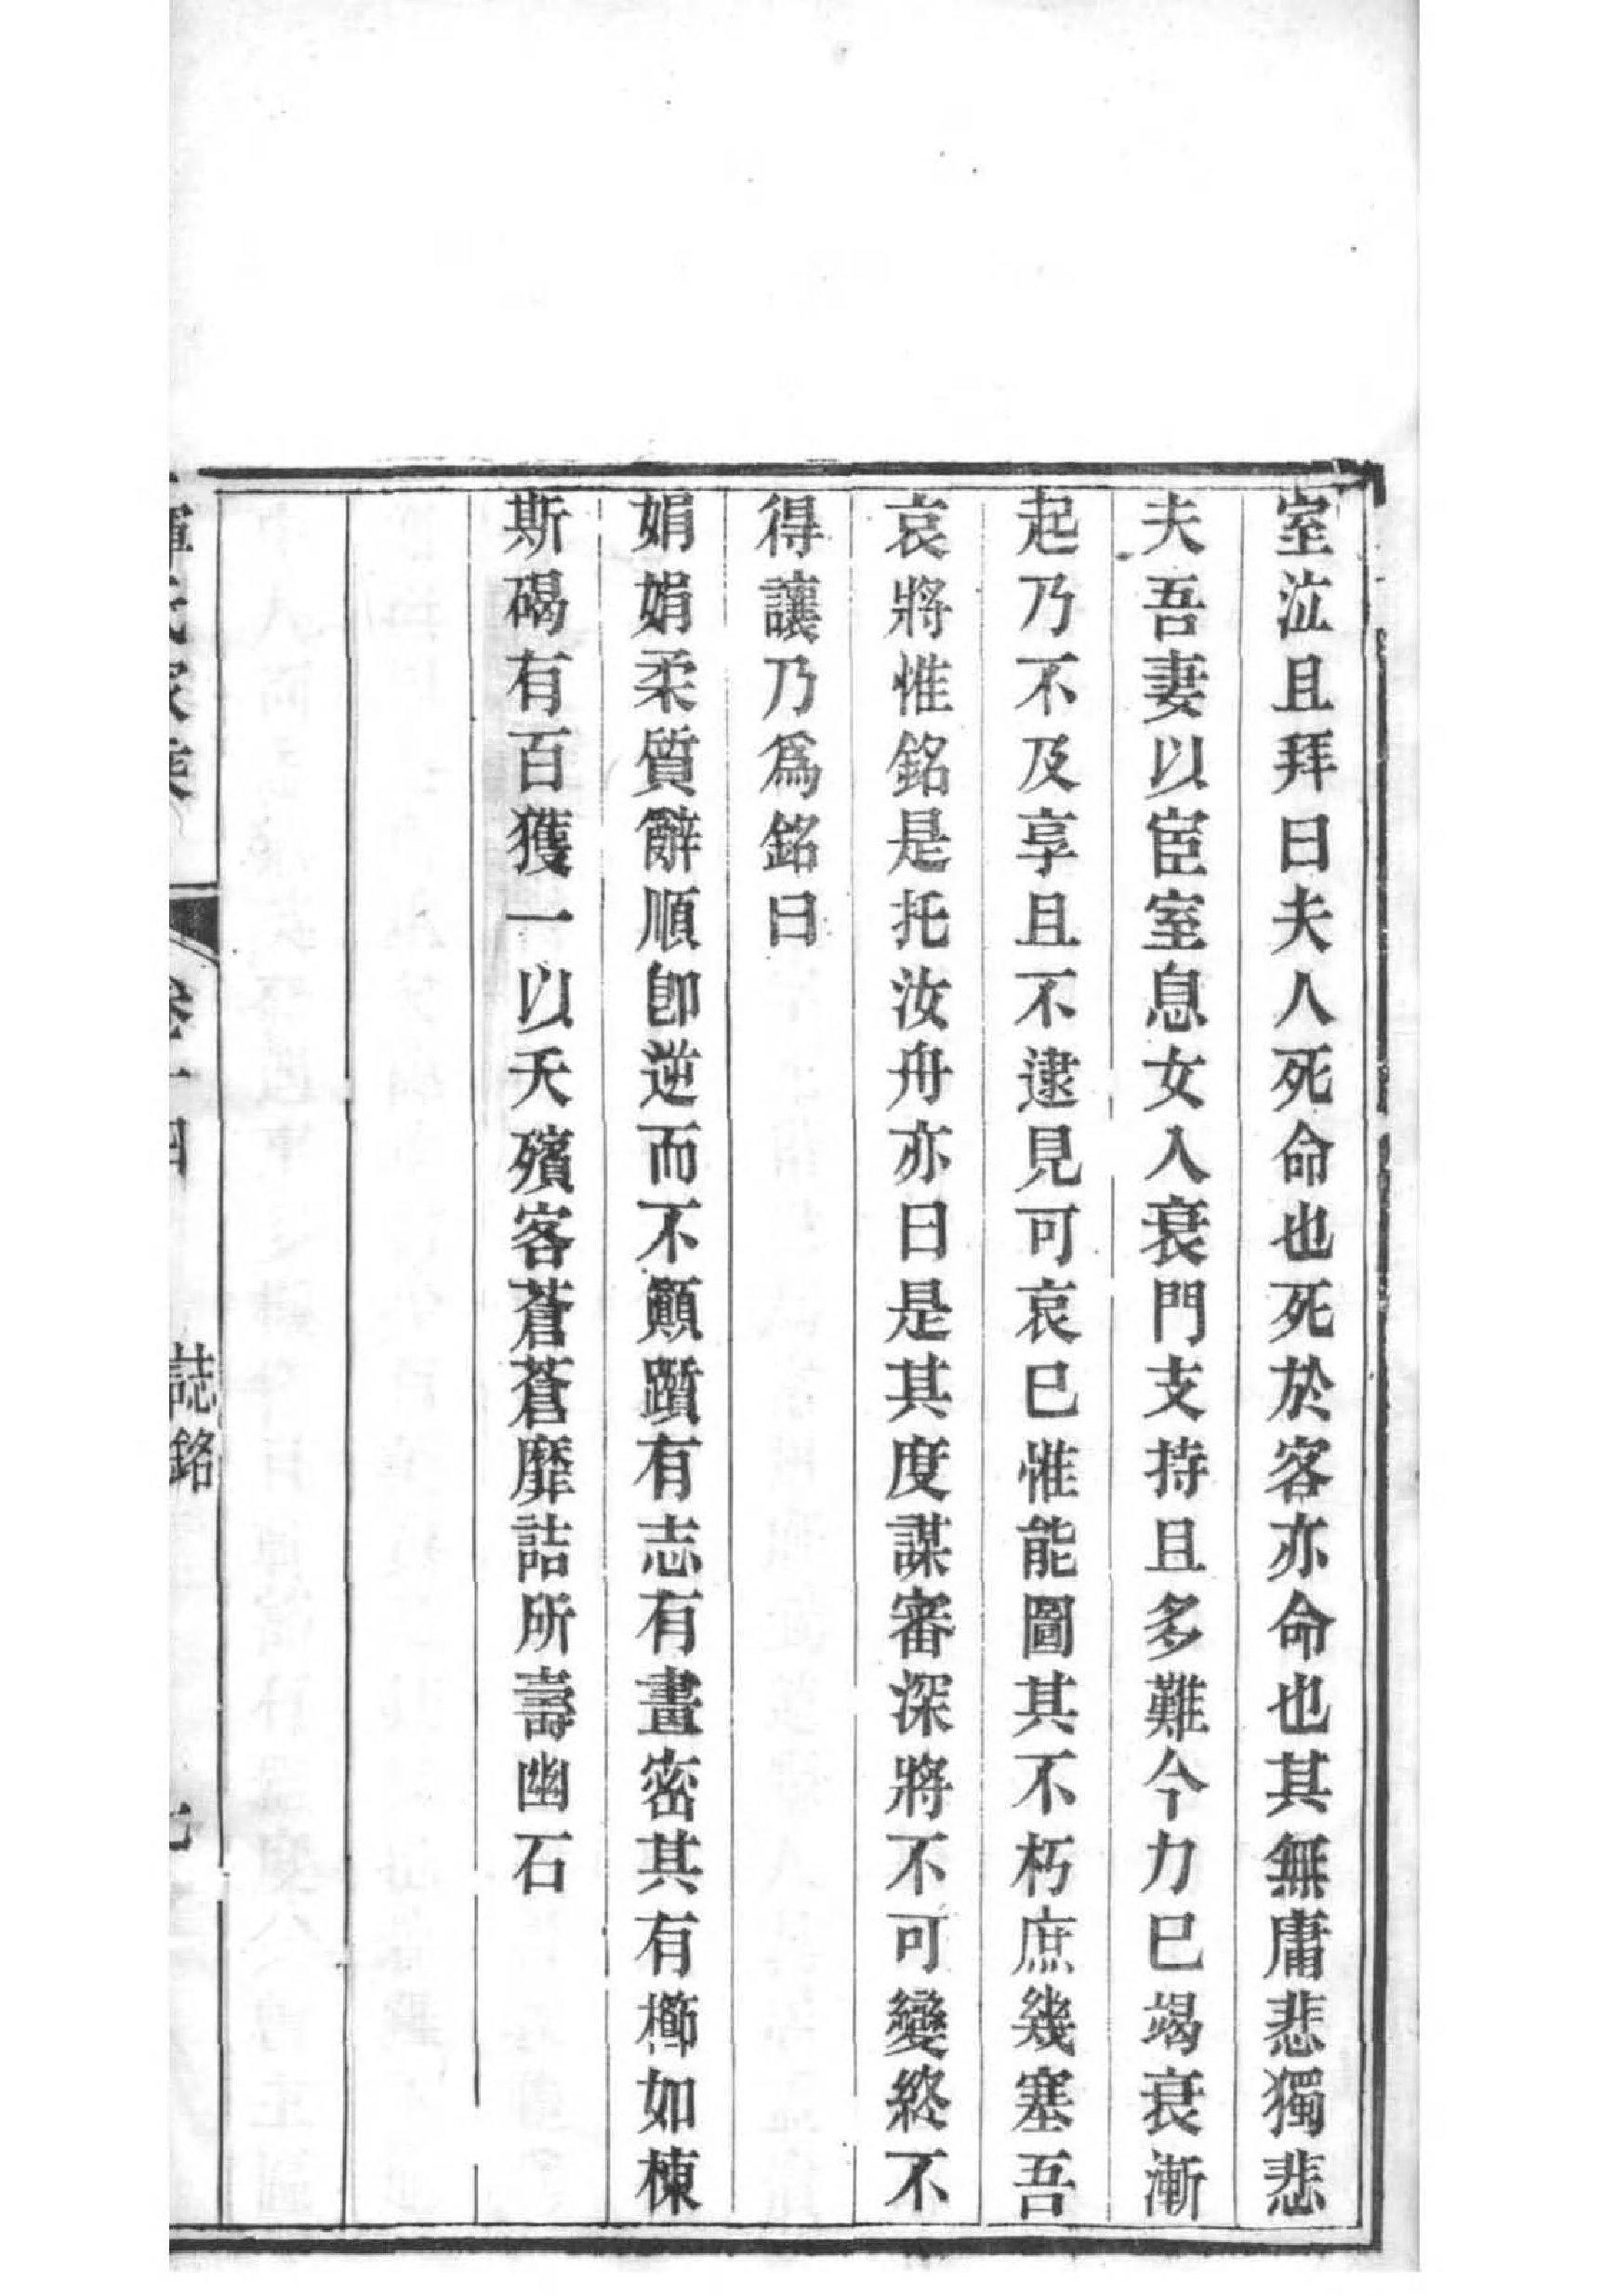 室泣且拜曰夫人死命也死於客亦命也其無庸悲獨悲
夫吾妻以宦室息女入衰門支持且多難今力已竭衰漸
起乃不及享且不逮見可哀已惟能圖其不朽庶幾塞吾
哀將惟銘是托汝舟亦曰是其度謀審深將不可變終不
得讓乃爲銘曰
娟娟柔質辭順卽逆而不顚躓有志有畫密其有櫛如棟
斯碣有百獲一以夭殯客蒼蒼靡詰所壽幽石
卷十四
誌銘
七